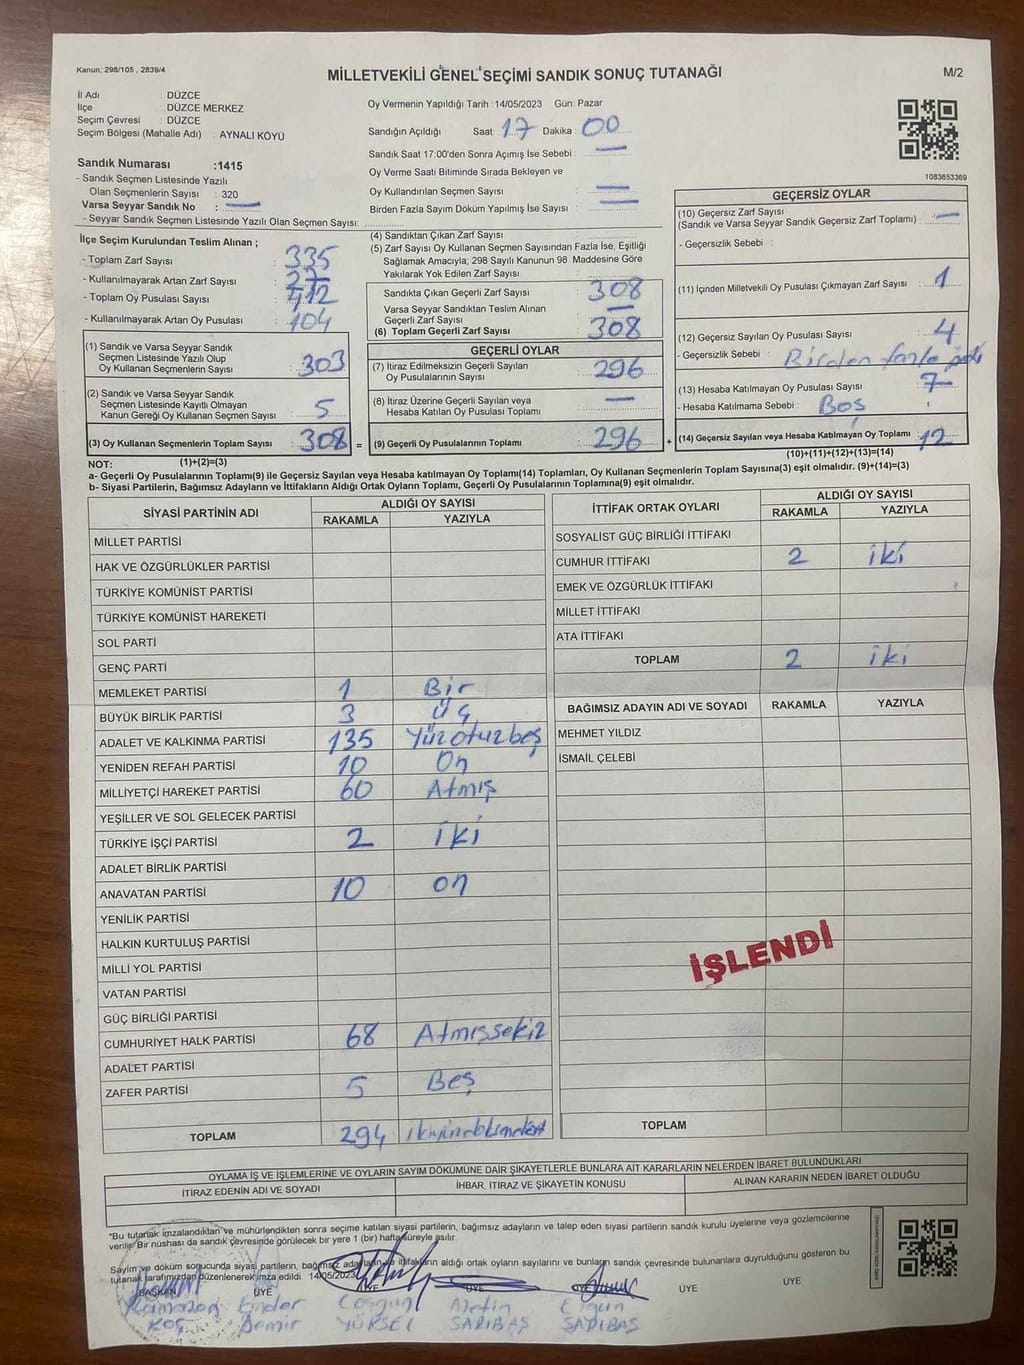 Kanun; 298/105 , 2839/4
MİLLETVEKİLİ GENEL SEÇİMİ SANDIK SONUÇ TUTANAĞI
M/2
İl Adı : DÜZCE
İlçe : DÜZCE MERKEZ
Seçim Çevresi : DÜZCE
Seçim Bölgesi (Mahalle Adı) : AYNALI KÖYÜ
Sandık Numarası :1415
- Sandık Seçmen Listesinde Yazılı
Olan Seçmenlerin Sayısı : 320
Varsa Seyyar Sandık No : —
- Seyyar Sandık Seçmen Listesinde Yazılı Olan Seçmen Sayısı:
Oy Vermenin Yapıldığı Tarih :14/05/2023 Gün: Pazar
Sandığın Açıldığı Saat: 17 Dakika : 00
Sandık Saat 17:00'den Sonra Açımış İse Sebebi : —
Oy Verme Saati Bitiminde Sırada Bekleyen ve
Oy Kullandırılan Seçmen Sayısı : —
Birden Fazla Sayım Döküm Yapılmış İse Sayısı : —
1083653369
İlçe Seçim Kurulundan Teslim Alınan ;
- Toplam Zarf Sayısı : 335
- Kullanılmayarak Artan Zarf Sayısı : 27
- Toplam Oy Pusulası Sayısı : 412
- Kullanılmayarak Artan Oy Pusulası : 104
(1) Sandık ve Varsa Seyyar Sandık
Seçmen Listesinde Yazılı Olup
Oy Kullanan Seçmenlerin Sayısı : 303
(2) Sandık ve Varsa Seyyar Sandık
Seçmen Listesinde Kayıtlı Olmayan
Kanun Gereği Oy Kullanan Seçmen Sayısı : 5
(3) Oy Kullanan Seçmenlerin Toplam Sayısı : 308 =
(1)+(2)=(3)
(4) Sandıktan Çıkan Zarf Sayısı :
(5) Zarf Sayısı Oy Kullanan Seçmen Sayısından Fazla İse, Eşitliği
Sağlamak Amacıyla, 298 Sayılı Kanunun 98. Maddesine Göre
Yakılarak Yok Edilen Zarf Sayısı :
Sandıkta Çıkan Geçerli Zarf Sayısı : 308
Varsa Seyyar Sandıktan Teslim Alınan
Geçerli Zarf Sayısı : —
(6) Toplam Geçerli Zarf Sayısı : 308
GEÇERLİ OYLAR
(7) İtiraz Edilmeksizin Geçerli Sayılan
Oy Pusulalarının Sayısı : 296
(8) İtiraz Üzerine Geçerli Sayılan veya
Hesaba Katılan Oy Pusulası Toplamı : —
(9) Geçerli Oy Pusulalarının Toplamı : 296 +
GEÇERSİZ OYLAR
(10) Geçersiz Zarf Sayısı
(Sandık ve Varsa Seyyar Sandık Geçersiz Zarf Toplamı) : —
- Geçersizlik Sebebi :
(11) İçinden Milletvekili Oy Pusulası Çıkmayan Zarf Sayısı : 1
(12) Geçersiz Sayılan Oy Pusulası Sayısı : 4
- Geçersizlik Sebebi : Birden fazla
(13) Hesaba Katılmayan Oy Pusulası Sayısı : 7
- Hesaba Katılmama Sebebi : Boş
(14) Geçersiz Sayılan veya Hesaba Katılmayan Oy Toplamı : 12
(10)+(11)+(12)+(13)=(14)
NOT:
a- Geçerli Oy Pusulalarının Toplamı(9) ile Geçersiz Sayılan veya Hesaba katılmayan Oy Toplamı(14) Toplamları, Oy Kullanan Seçmenlerin Toplam Sayısına(3) eşit olmalıdır. (9)+(14)=(3)
b- Siyasi Partilerin, Bağımsız Adayların ve İttifakların Aldığı Ortak Oyların Toplamı, Geçerli Oy Pusulalarının Toplamına(9) eşit olmalıdır.
SİYASİ PARTİNİN ADI ALDIĞI OY SAYISI
RAKAMLA YAZIYLA
MİLLET PARTİSİ
HAK VE ÖZGÜRLÜKLER PARTİSİ
TÜRKİYE KOMÜNİST PARTİSİ
TÜRKİYE KOMÜNİST HAREKETİ
SOL PARTİ
GENÇ PARTİ
MEMLEKET PARTİSİ 1 Bir
BÜYÜK BİRLİK PARTİSİ 3 Üç
ADALET VE KALKINMA PARTİSİ 135 Yüzotuzbeş
YENİDEN REFAH PARTİSİ 10 On
MİLLİYETÇİ HAREKET PARTİSİ 60 Atmış
YEŞİLLER VE SOL GELECEK PARTİSİ
TÜRKİYE İŞÇİ PARTİSİ 2 iki
ADALET BİRLİK PARTİSİ
ANAVATAN PARTİSİ 10 on
YENİLİK PARTİSİ
HALKIN KURTULUŞ PARTİSİ
MİLLİ YOL PARTİSİ
VATAN PARTİSİ
GÜÇ BİRLİĞİ PARTİSİ
CUMHURİYET HALK PARTİSİ 68 Atmışsekiz
ADALET PARTİSİ
ZAFER PARTİSİ 5 Beş
TOPLAM 294
İTTİFAK ORTAK OYLARI ALDIĞI OY SAYISI
RAKAMLA YAZIYLA
SOSYALİST GÜÇ BİRLİĞİ İTTİFAKI
CUMHUR İTTİFAKI 2 iki
EMEK VE ÖZGÜRLÜK İTTİFAKI
MİLLET İTTİFAKI
ATA İTTİFAKI
TOPLAM 2 iki
BAĞIMSIZ ADAYIN ADI VE SOYADI RAKAMLA YAZIYLA
MEHMET YILDIZ
İSMAİL ÇELEBİ
İŞLENDİ
TOPLAM
OYLAMA İŞ VE İŞLEMLERİNE VE OYLARIN SAYIM DÖKÜMÜNE DAİR ŞİKAYETLERLE BUNLARA AİT KARARLARIN NELERDEN İBARET BULUNDUKLARI
İTİRAZ EDENİN ADI VE SOYADI İHBAR, İTİRAZ VE ŞİKAYETİN KONUSU ALINAN KARARIN NEDEN İBARET OLDUĞU
"Bu tutanak imzalandıktan ve mühürlendikten sonra seçime katılan siyasi partilerin, bağımsız adayların ve talep eden siyasi partilerin sandık kurulu üyelerine veya gözlemcilerine
verilir. Bir nüshası da sandık çevresinde görülecek bir yere 1 (bir) hafta süreyle asılır.
Sayım ve döküm sonucunda siyasi partilerin, bağımsız adayların ve ittifakların aldığı ortak oyların sayılarını ve bunların sandık çevresinde bulunanlara duyrulduğunu gösteren bu
tutanak tarafımızdan düzenlenerek imza edildi. 14/05/2023
BAŞKAN ÜYE ÜYE ÜYE ÜYE ÜYE
Ramazan Ender Coşgun Metin Ergün
KOÇ Demir YÜKSEL SARIBAŞ SARIBAŞ